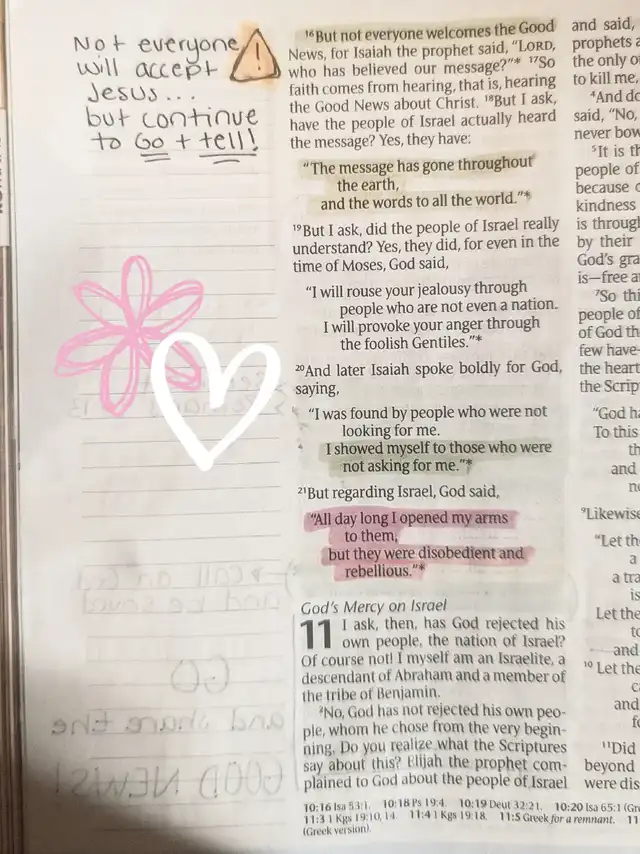 Not everyone
will accept
Jesus...
but continue
to Go + tell!
!
¹⁶But not everyone welcomes the Good
News, for Isaiah the prophet said, “LORD,
who has believed our message?”* ¹⁷So
faith comes from hearing, that is, hearing
the Good News about Christ. ¹⁸But I ask,
have the people of Israel actually heard
the message? Yes, they have:
“The message has gone throughout
the earth,
and the words to all the world.”*
¹⁹But I ask, did the people of Israel really
understand? Yes, they did, for even in the
time of Moses, God said,
“I will rouse your jealousy through
people who are not even a nation.
I will provoke your anger through
the foolish Gentiles.”*
²⁰And later Isaiah spoke boldly for God,
saying,
“I was found by people who were not
looking for me.
I showed myself to those who were
not asking for me.”*
²¹But regarding Israel, God said,
“All day long I opened my arms
to them,
but they were disobedient and
rebellious.”*
God's Mercy on Israel
11 I ask, then, has God rejected his
own people, the nation of Israel?
Of course not! I myself am an Israelite, a
descendant of Abraham and a member of
the tribe of Benjamin.
²No, God has not rejected his own peo-
ple, whom he chose from the very begin-
ning. Do you realize what the Scriptures
say about this? Elijah the prophet com-
plained to God about the people of Israel
10:16 Isa 53:1. 10:18 Ps 19:4. 10:19 Deut 32:21. 10:20 Isa 65:1 (Gre
11:3 1 Kgs 19:10, 14. 11:4 1 Kgs 19:18. 11:5 Greek for a remnant. 11
(Greek version).
and said,
prophets a
the only o
to kill me,
⁴And do
said, “No,
never bow
⁵It is th
people of
because o
kindness
is through
by their
God's gra
is—free a
⁷So thi
people of
of God th
few have
the heart
the Scrip
“God ha
To this
th
and
no
⁹Likewise
“Let the
a
a tra
is
Let the
to
and
¹⁰Let the
c
and
fo
¹¹Did
beyond
were dis
call on God
and be saved
GO
and share the
GOOD NEWS!